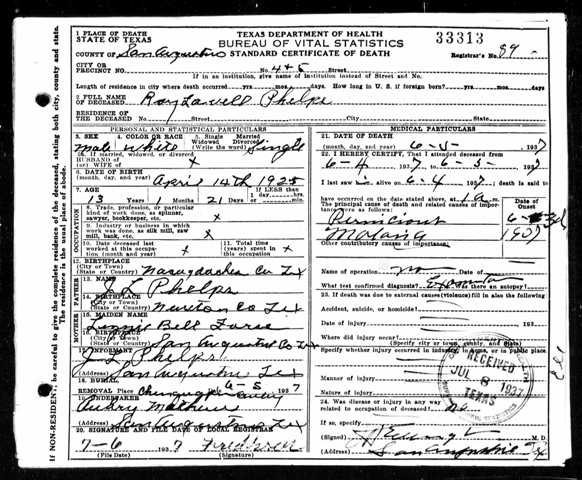 33313
1 PLACE OF DEATH
STATE OF TEXAS
TEXAS DEPARTMENT OF HEALTH
BUREAU OF VITAL STATISTICS
STANDARD CERTIFICATE OF DEATH
COUNTY OF San Augustine
Registrar's No. 89
CITY OR
PRECINCT NO. No. 4&5 Street
If in an institution, give name of institution instead of Street and No.
Length of residence in city where death occurred yrs. mos. days. How long in U. S. if foreign born? yrs. mos. days
2 FULL NAME
OF DECEASED Roy Lavell Phelps
RESIDENCE OF
THE DECEASED No. Street City State
PERSONAL AND STATISTICAL PARTICULARS
3. SEX 4. COLOR OR RACE 5. Single Married
Widowed Divorced
(Write the word)
male white Single
If married, widowed, or divorced
HUSBAND OF
(or) WIFE OF x
6. DATE OF BIRTH
(month, day, and year) April 14th 1925
7. AGE If LESS than
13 Years 1 Months 21 Days
OCCUPATION
8. Trade, profession, or particular
kind of work done, as spinner,
sawyer, bookkeeper, etc. x
9. Industry or business in which
work was done, as silk mill, saw
mill, bank, etc. x
10. Date deceased last
worked at this occupation
(month and year) x
11. Total time (years)
spent in this
occupation x
12. BIRTHPLACE
(City or Town)
(State or Country) Nacogdoches Co Tex
FATHER
13. NAME
J L Phelps
14. BIRTHPLACE
(City or Town)
(State or Country) Newton Co Tex
MOTHER
15. MAIDEN NAME
Bell
16. BIRTHPLACE
(City or Town)
(State or Country) San Augustine Co Tex
17. INFORMANT
J L Phelps
(Address) San Augustine Tex
18. BURIAL
REMOVAL Place 6-5 1937
19. UNDERTAKER
Aubry Mathews
(Address) San Augustine Tex
20. SIGNATURE AND FILE DATE OF LOCAL REGISTRAR
7-6 1937
(File Date) (Signature)
MEDICAL PARTICULARS
21. DATE OF DEATH
(month, day, and year) 6-5- 1937
22. I HEREBY CERTIFY, That I attended deceased from
6-4 1937, to 6-5 1937
I last saw alive on 6-4 1937, death is said to
have occurred on the date stated above, at 1 a m.
The principal cause of death and related causes of importance were as follows:
Date of
Onset
Pernicious
Malaria
1937
Other contributory causes of importance:
Name of operation no
What test confirmed diagnosis? Was there an autopsy?
23. If death was due to external causes (violence) fill in also the following
Accident, suicide, or homicide?
Date of injury
Where did injury occur?
(Specify city or town, county and state)
Specify whether injury occurred in industry, in home, or in public place.
Manner of injury
Nature of injury
24. Was disease or injury in any way
related to occupation of deceased? no
If so, specify
(Signed) M. D.
(Address) San Augustine Tex
RECEIVED
JUL 8 1937
TEXAS
NON-RESIDENT, be careful to give the complete residence of the deceased, stating both city, county and state.
The residence is the usual place of abode.